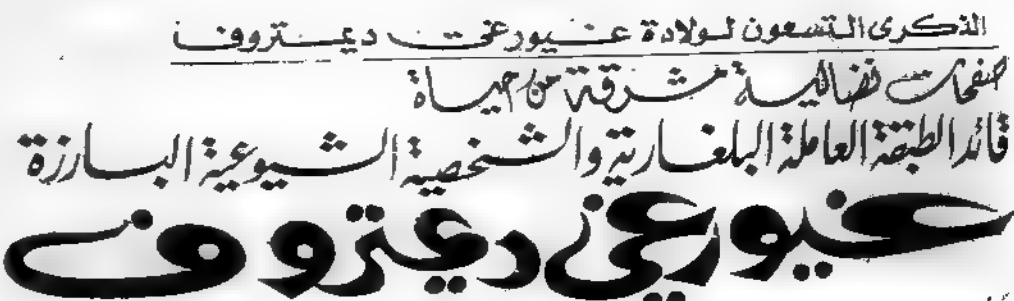 الذكرى التسعون لولادة غيورغي ديمتروف
صفحات نضالية مشرقة من حياة
قائد الطبقة العاملة البلغارية والشخصية الشيوعية البارزة
غيورغي ديمتروف